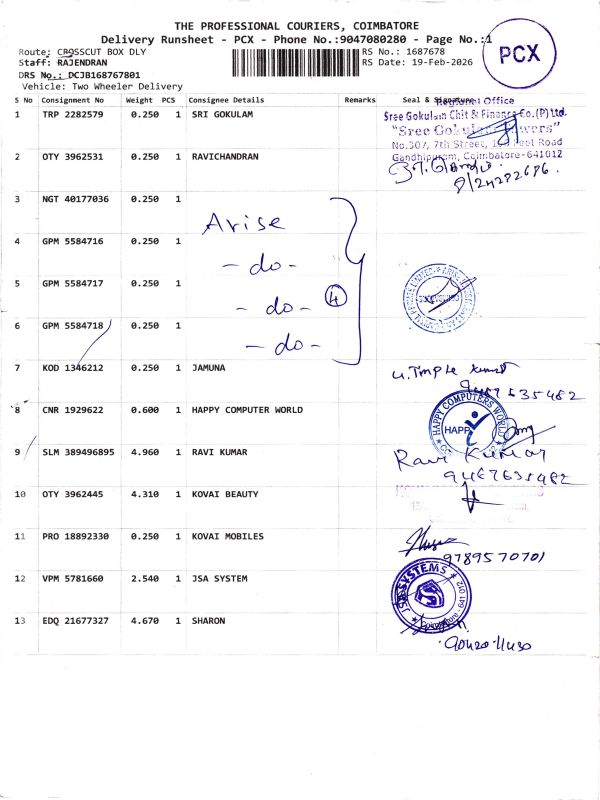 THE PROFESSIONAL COURIERS, COIMBATORE
Delivery Runsheet - PCX - Phone No.:9047080280 - Page No.:1
PCX
Route: CROSSCUT BOX DLY
RS No.: 1687678
Staff: RAJENDRAN
RS Date: 19-Feb-2026
DRS No.: DCJB168767801
Vehicle: Two Wheeler Delivery
S No Consignment No Weight PCS Consignee Details Remarks Seal & Signature
Regional Office
1 TRP 2282579 0.250 1 SRI GOKULAM
Sree Gokulam Chit & Finance Co.(P) Ltd.
"Sree Gokulam Towers"
No.307, 7th Street, 100 Feet Road
Gandhipuram, Coimbatore-641012
2 OTY 3962531 0.250 1 RAVICHANDRAN
3 NGT 40177036 0.250 1
Arise
4 GPM 5584716 0.250 1
- do -
5 GPM 5584717 0.250 1
- do - 4
6 GPM 5584718 0.250 1
- do -
7 KOD 1346212 0.250 1 JAMUNA
8 CNR 1929622 0.600 1 HAPPY COMPUTER WORLD
HAPPY COMPUTERS WORLD
HAPPY
9 SLM 389496895 4.960 1 RAVI KUMAR
Ravi Kumar
9487635482
10 OTY 3962445 4.310 1 KOVAI BEAUTY
11 PRO 18892330 0.250 1 KOVAI MOBILES
9789570701
12 VPM 5781660 2.540 1 JSA SYSTEM
JSA SYSTEMS
13 EDQ 21677327 4.670 1 SHARON